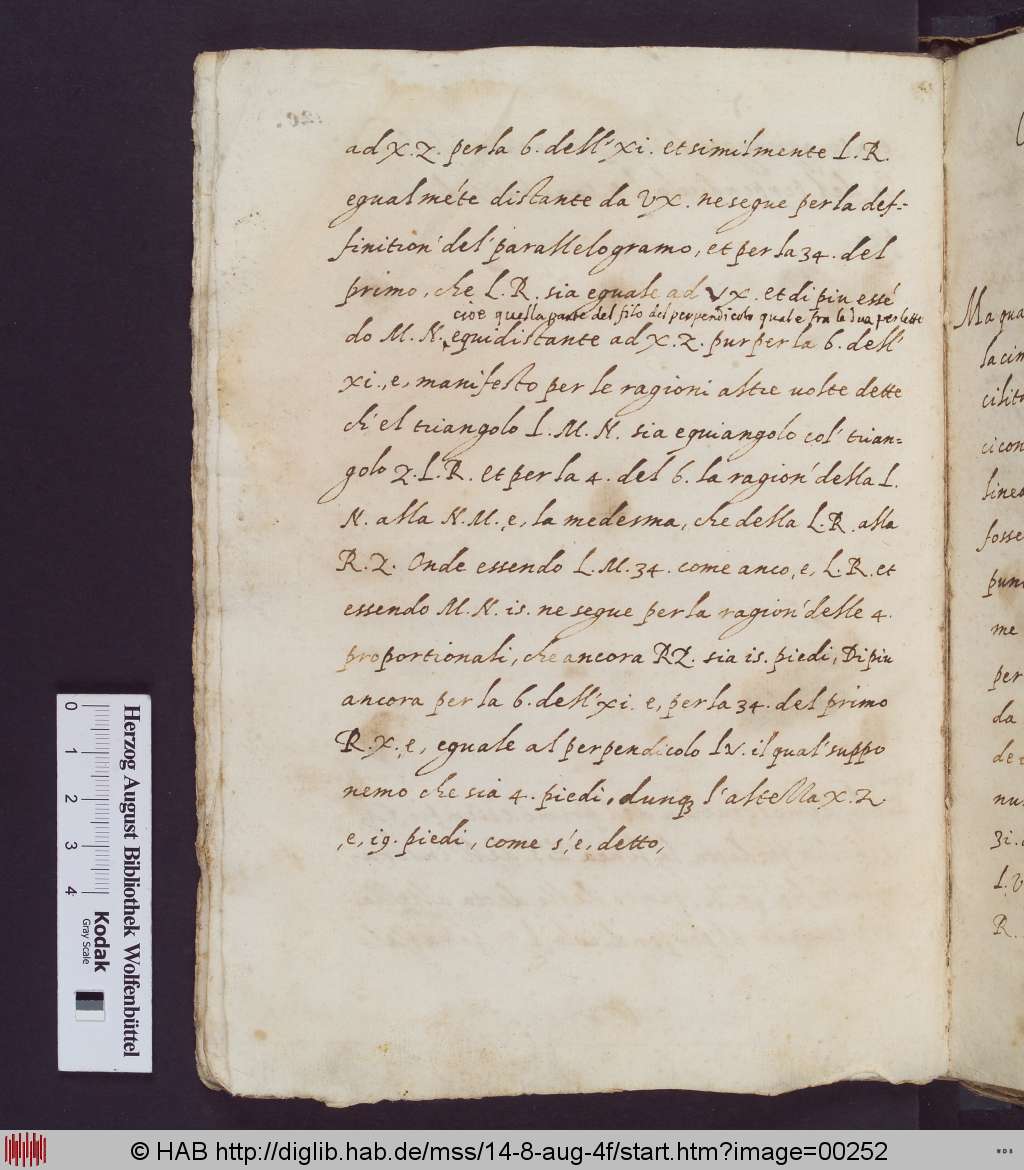 ad X. Z. per la 6. dell' xi. et similmente L. R.
egualmẽte distante da V X. ne segue per la def-
finition' del' parallelogramo, et per la 34. del
primo, che L. R. sia eguale ad V X. et di piu essẽ
cioe quella parte del filo del perpendicolo qual e fra le due
do M. N. equidistante ad X. Z. pur per la 6. dell'
xi. ,e, manifesto per le ragioni altre uolte dette
ch' el triangolo L. M. N. sia equiangolo col' trian=
golo Z. L. R. et per la 4. del 6. la ragion' della L.
N. alla N. M. ,e, la medesma, che della L. R. alla
R. Z. Onde essendo L. M. 34. come anco ,e, L. R. et
essendo M. N. is. ne segue per la ragion' delle 4.
proportionali, che ancora RZ. sia is. piedi, Di piu
ancora per la 6. dell' xi. e, per la 34. del primo
R. X. ,e, eguale al perpendicolo L V. il qual' suppo
nemo che sia 4. piedi, dunq; l'altezza X. Z
,e, i9. piedi, come s',e, detto,
Ma qua
la cim
cilit
ci con
linea
fosse
pun
me
per
da
de
nu
3i.
L. V
R.
0 1 2 3 4
Herzog August Bibliothek Wolfenbüttel
Kodak
Gray Scale
© HAB http://diglib.hab.de/mss/14-8-aug-4f/start.htm?image=00252